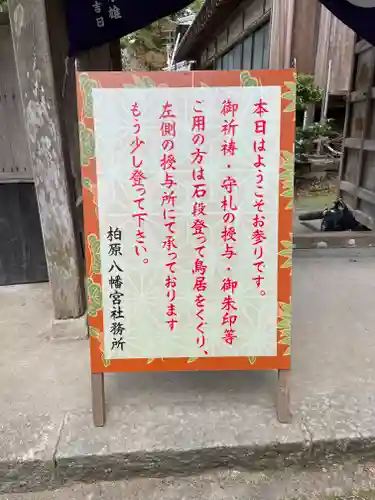 雄
吉日
本日はようこそお参りです。
御祈祷・守札の授与・御朱印等
ご用の方は石段登って鳥居をくぐり、
左側の授与所にて承っております
もう少し登って下さい。
柏原八幡宮社務所